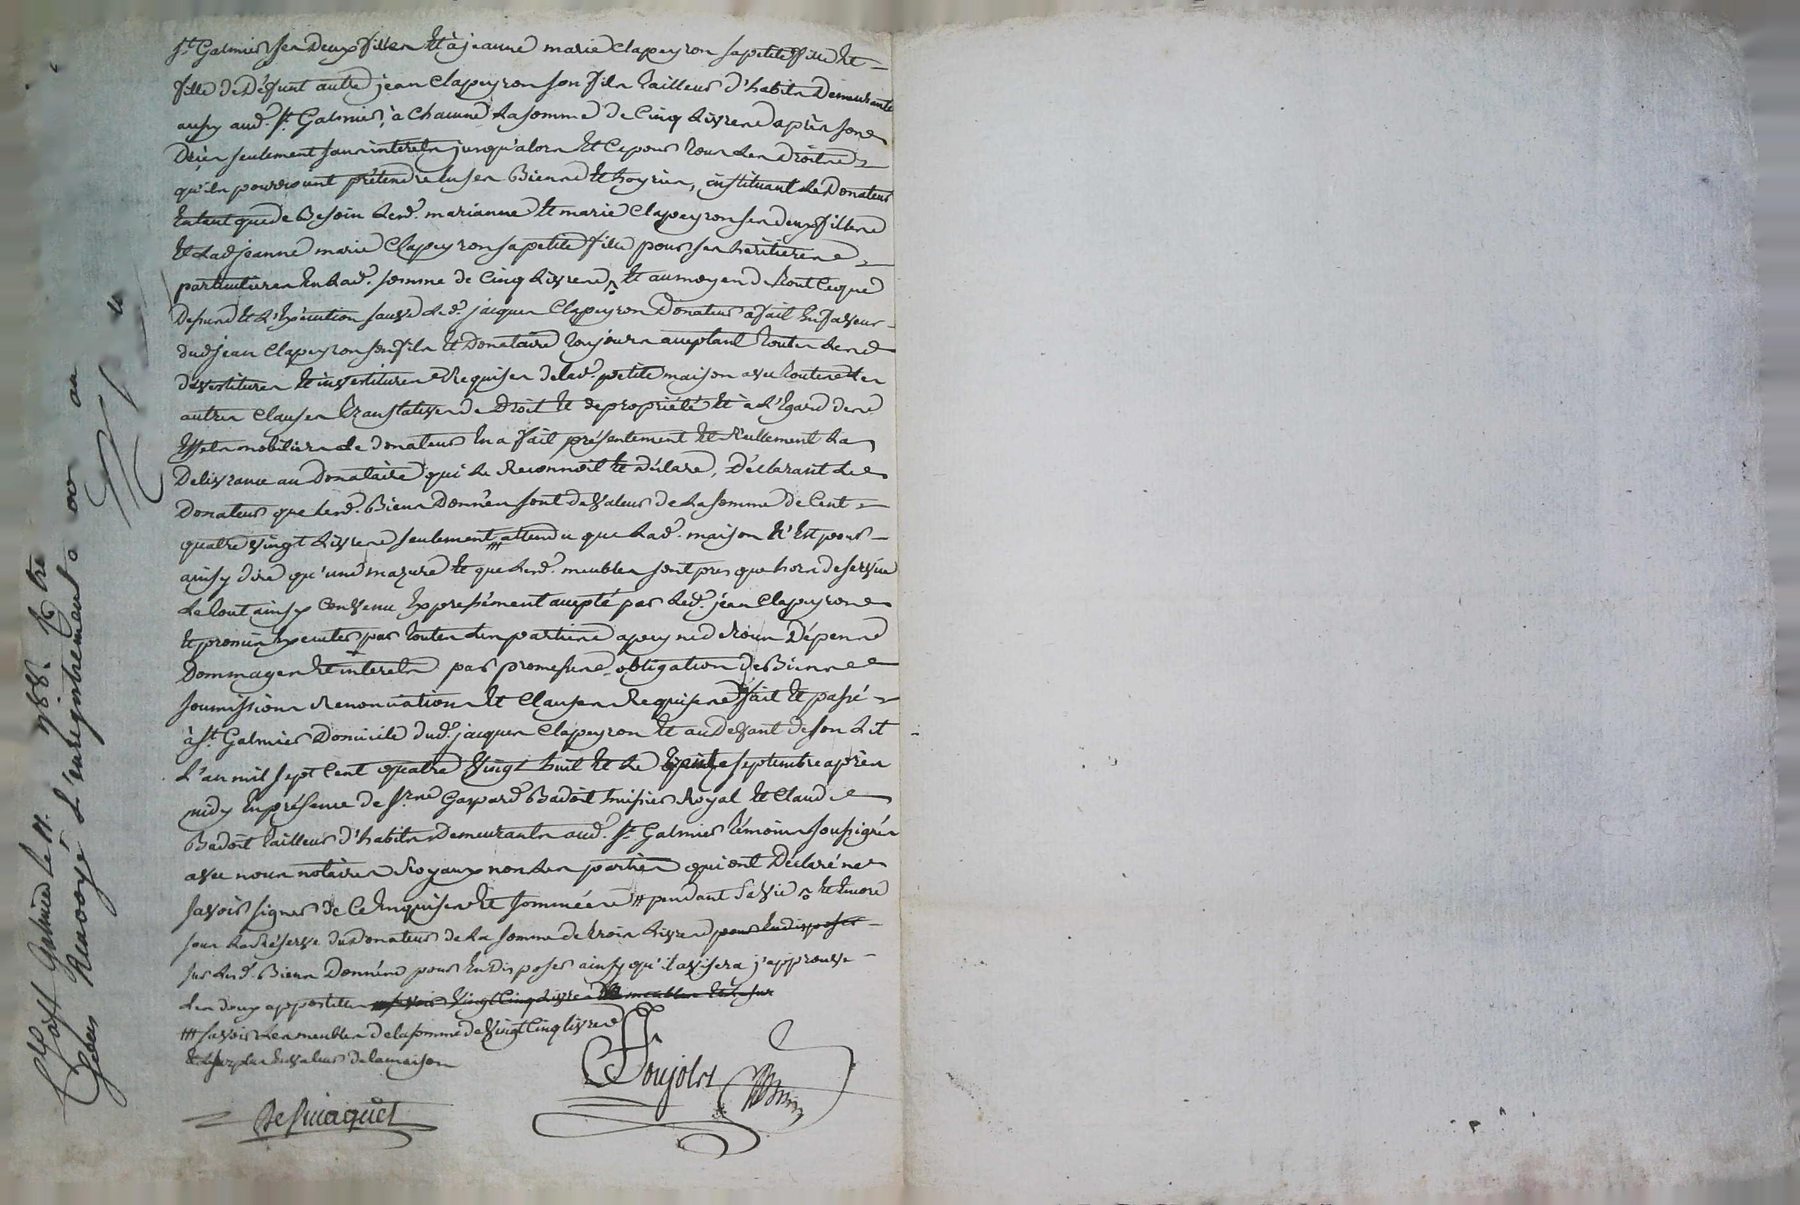 St. Galmier ses deux filles Et à jeanne marie Clapeyron sa petite fille Et
fille de Défunt autre jean Clapeyron son fils tailleur d'habits Demeurante
aussy aud. St. Galmier, à Chacune La somme de Cinq Livres après son
Décès seulement sans interets jusqu'alors Et Ce pour tous Les Droits
qu'ils pourroient prétendre en ses Biens Et hoyries, instituant Le Donateur
En tant que de Besoin Lesd. marianne Et marie Clapeyron ses deux filles
Et Lad. jeanne marie Clapeyron sa petite fille pour ses heritieres
particulieres En Lad. somme de Cinq Livres, Et au moyen de tout Ce que
Dessus Et L'Exécution sauve Led. jacques Clapeyron Donateur a fait En faveur
dud. jean Clapeyron son fils Et Donataire toujours aceptant toutes Les
devestitures Et investitures Requises de Lad. petite maison avec toutes Les
autres Clauses translatives de Droit Et de propriété Et à L'Egard des
Effets mobiliers Le donateur En a fait présentement Et Réellement La
Delivrance au Donataire qui Le Reconnoit Et Déclare, Déclarant Le
Donateur que Lesd. Biens Donnés sont de Valeur de La somme de Cent
quatre vingt Livres seulement attendu que Lad. maison N'Est pour
ainsy dire qu'une mazure Et que Lesd. meubles sont presque hors de service
Le tout ainsy Convenu Expressément accepté par Led. jean Clapeyron
Et promis Executer par toutes Les parties a peyne de tous Dépens
Dommages Et interets par promesses obligation de Biens
soumissions Renonciations Et Clauses Requises fait Et passé
à St. Galmier Domicile dud. jacques Clapeyron Et au Devant de son Lit
L'an mil sept Cent quatre Vingt huit Et Le septembre après
midy En présence de Sr. Gaspard Badoit huissier Royal Et Claude
Badoit tailleur d'habits Demeurants aud. St. Galmier témoins soussignés
avec nous notaires Royaux non Les parties qui ont Déclaré ne
savoir signer de Ce Enquises Et sommées # pendant sa Vie Et Encore
sous La Réserve du Donateur de La somme de trois Livres pour En disposer
sur Lesd. Biens Donnés pour En Disposer ainsy qu'il avisera j'approuve
Les deux appostilles
savoir Les meubles de la somme de Vingt Cinq livres
Et Le surplus En valeur de la maison
Desmaquet
Poujolat
St. Galmier Le 11. 7bre 1788
Renvoyé L'enregistrement au